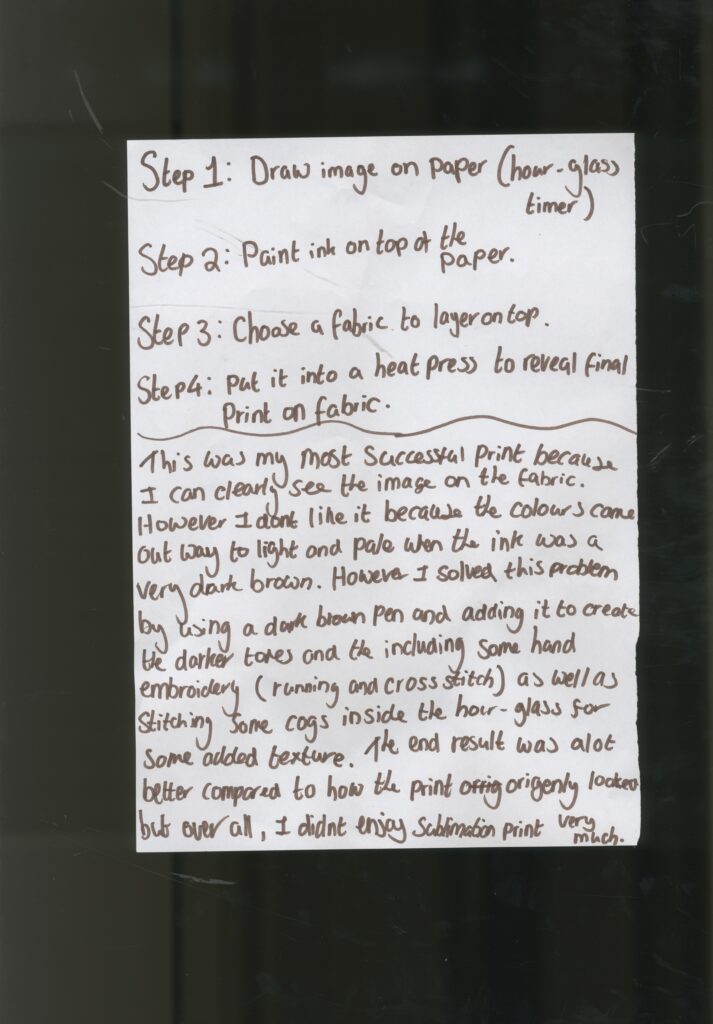 Step 1: Draw image on paper (hour-glass
timer)
Step 2: Paint ink on top of the
paper.
Step 3: Choose a fabric to layer on top.
Step 4: Put it into a heat press to reveal final
Print on fabric.
This was my most successful print because
I can clearly see the image on the fabric.
However I dont like it because the colours came
out way to light and pale wen the ink was a
very dark brown. However I solved this problem
by using a dark brown pen and adding it to create
the darker tones and the including some hand
embroidery (running and cross stitch) as well as
stitching some cogs inside the hour-glass for
some added texture. The end result was alot
better compared to how the print origenly looked
but over all, I didnt enjoy sublimation print very
much.